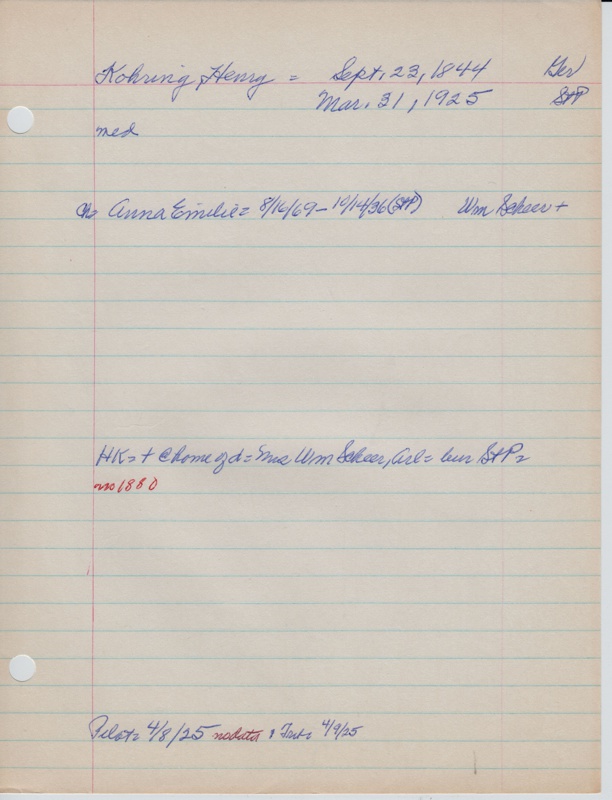 Kohring, Henry = Sept. 23, 1844 Ger
Mar. 31, 1925 StP
med
ch= Anna Emilie = 8/16/69 - 10/14/36 (StP) Wm Scheer +
HK = + @ home of d = Mrs Wm Scheer, Arl = bur StP =
no 1880
Pilot = 4/8/25 no data & Trib = 4/9/25